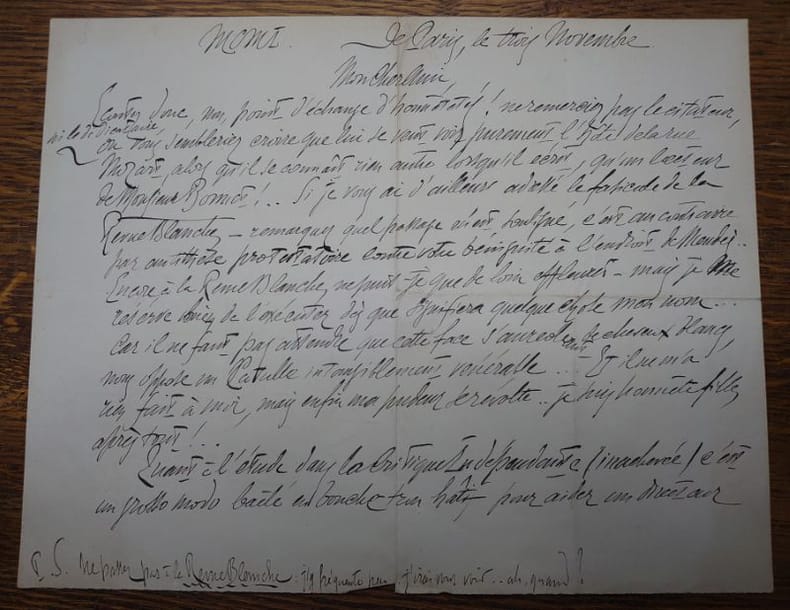 De Paris, le trois Novembre
Mon cher Ami,
donc, un point d'échange d'honnêtetés ! ne remerciez pas le citateur,
ou vous sembleriez croire que lui se veut voir purement l'hôte de la rue
Mozart, alors qu'il se connaît rien autre lorsqu'il écrit, qu'un lecteur
de Monsieur !.. Si je vous ai d'ailleurs adressé le fascicule de la
Revue Blanche – remarquez quel passage m'est souligné, c'est au contraire
par antithèse protestatoire contre votre à l'endroit de Mendès..
Encore à la Revue Blanche, ne puis-je que de loin effleurer – mais je me
réserve de l'exécuter dès que signifiera quelque chose mon nom...
Car il ne faut pas attendre que cette face s'auréolant de cheveux blancs,
nous oppose un Catulle intangiblement vénérable ... Et il ne m'a
rien fait à moi, mais enfin ma pudeur se révolte.. je suis honnête fille,
après tout !..
Quant à l'étude dans la Critique Indépendante (inachevée) c'est
un grosso modo hâtif pour aider un directeur
P. S. Ne passez pas à la Revue Blanche : j'y fréquente peu j'irai vous voir.. ah, quand ?